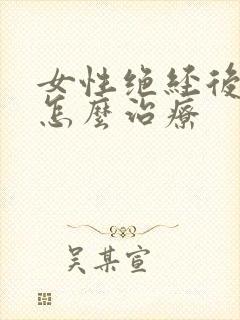 女性绝经後
怎麼治療
吴某宣